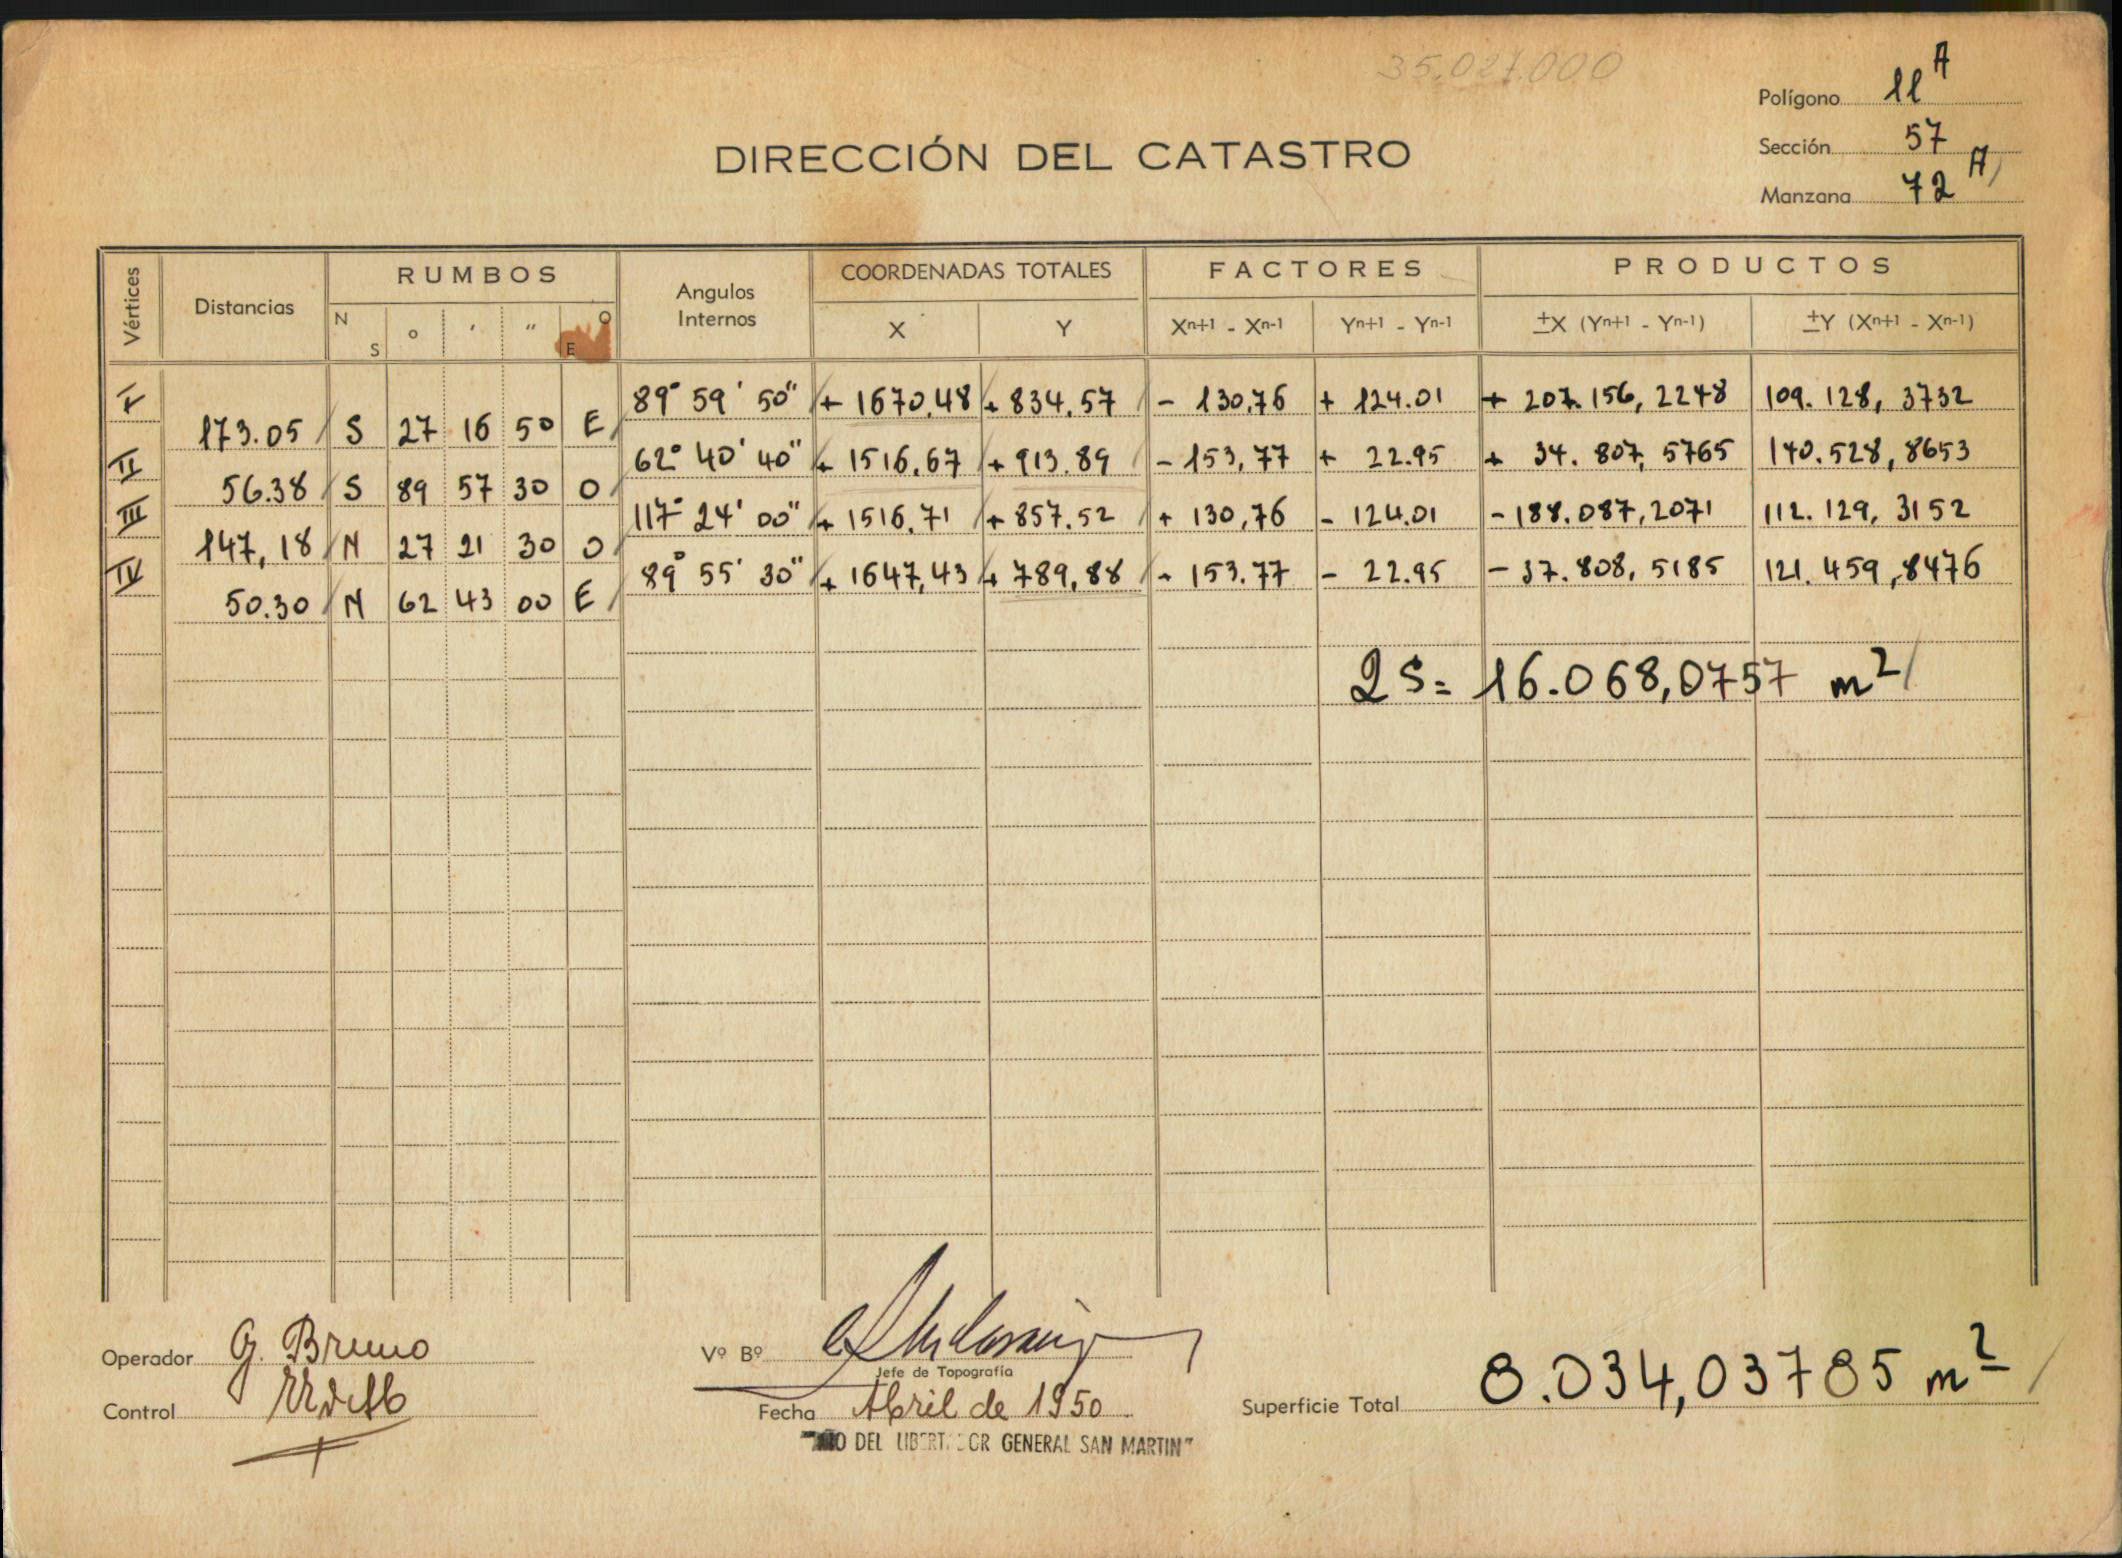 35.027.000
Polígono 11 A
Sección 57
Manzana 72 A
DIRECCIÓN DEL CATASTRO
Vértices Distancias RUMBOS Angulos Internos COORDENADAS TOTALES FACTORES PRODUCTOS
N S ° ' " E O X Y Xn+1 - Xn-1 Yn+1 - Yn-1 ±X (Yn+1 - Yn-1) ±Y (Xn+1 - Xn-1)
I 173.05 S 27 16 50 E 89° 59' 50" + 1670,48 + 834,57 - 130,76 + 124.01 + 207.156,2248 109.128,3732
II 56.38 S 89 57 30 O 62° 40' 40" + 1516,67 + 913.89 - 153,77 + 22.95 + 34.807,5765 140.528,8653
III 147,18 N 27 21 30 O 117° 24' 00" + 1516,71 + 857.52 + 130,76 - 124.01 - 188.087,2071 112.129,3152
IV 50.30 N 62 43 00 E 89° 55' 30" + 1647,43 + 789,88 + 153.77 - 22.95 - 37.808,5185 121.459,8476
2 S = 16.068,0757 m²
Operador G. Bruno
Control
Vº Bº
Jefe de Topografía
Fecha Abril de 1950
DEL LIBERTADOR GENERAL SAN MARTIN"
Superficie Total 8.034,03785 m²